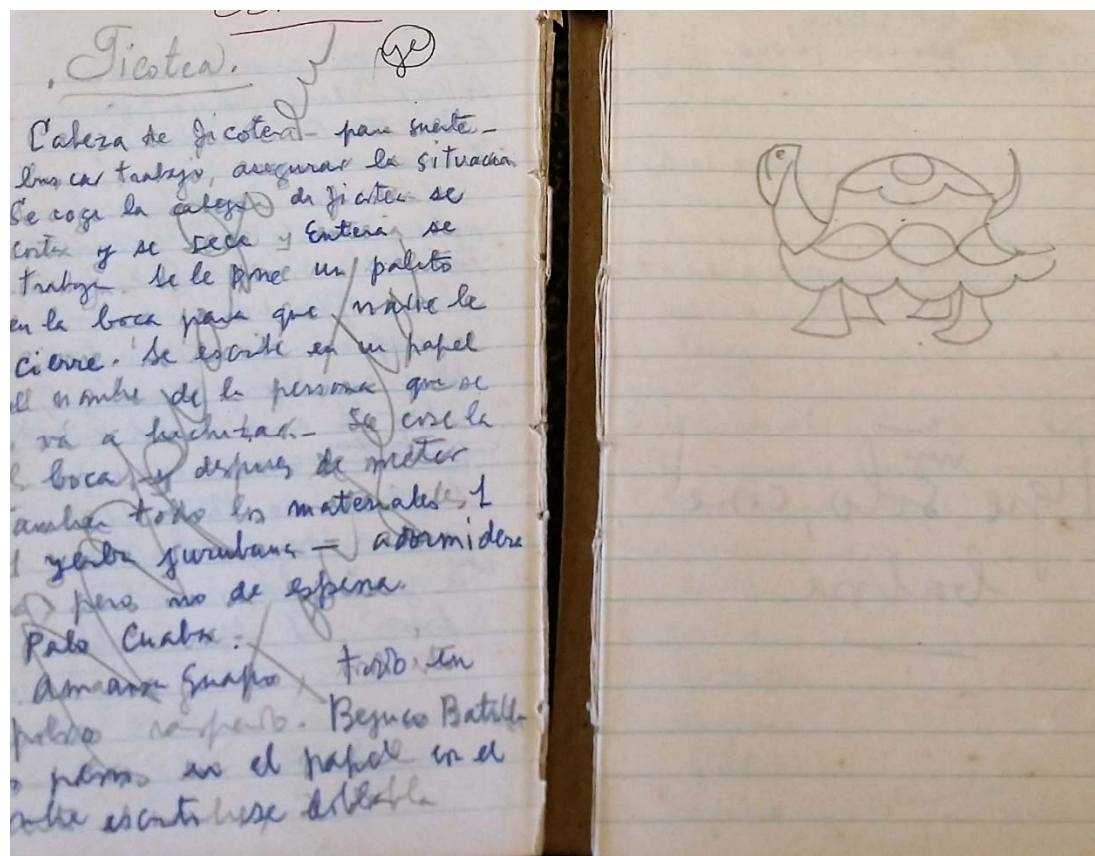 Jicotea.
ge
Cabeza de Jicotea - para suerte -
buscar trabajo, asegurar la situacion
Se coge la cabeza de Jicotea se
corta y se seca y Entera se
trabaja. Se le pone un palito
en la boca para que nadie le
cierre. Se escribe en un papel
el nombre de la persona que se
vá a hechizar. - Se cose la
boca y despues de meter
todo los materiales, 1
1 yerba jurubana = adormidera
pero no de espina.
Palo Cuaba.
Amansa Guapo todo en
polvo raspado. Bejuco Batalla
en el papel en el
escrito